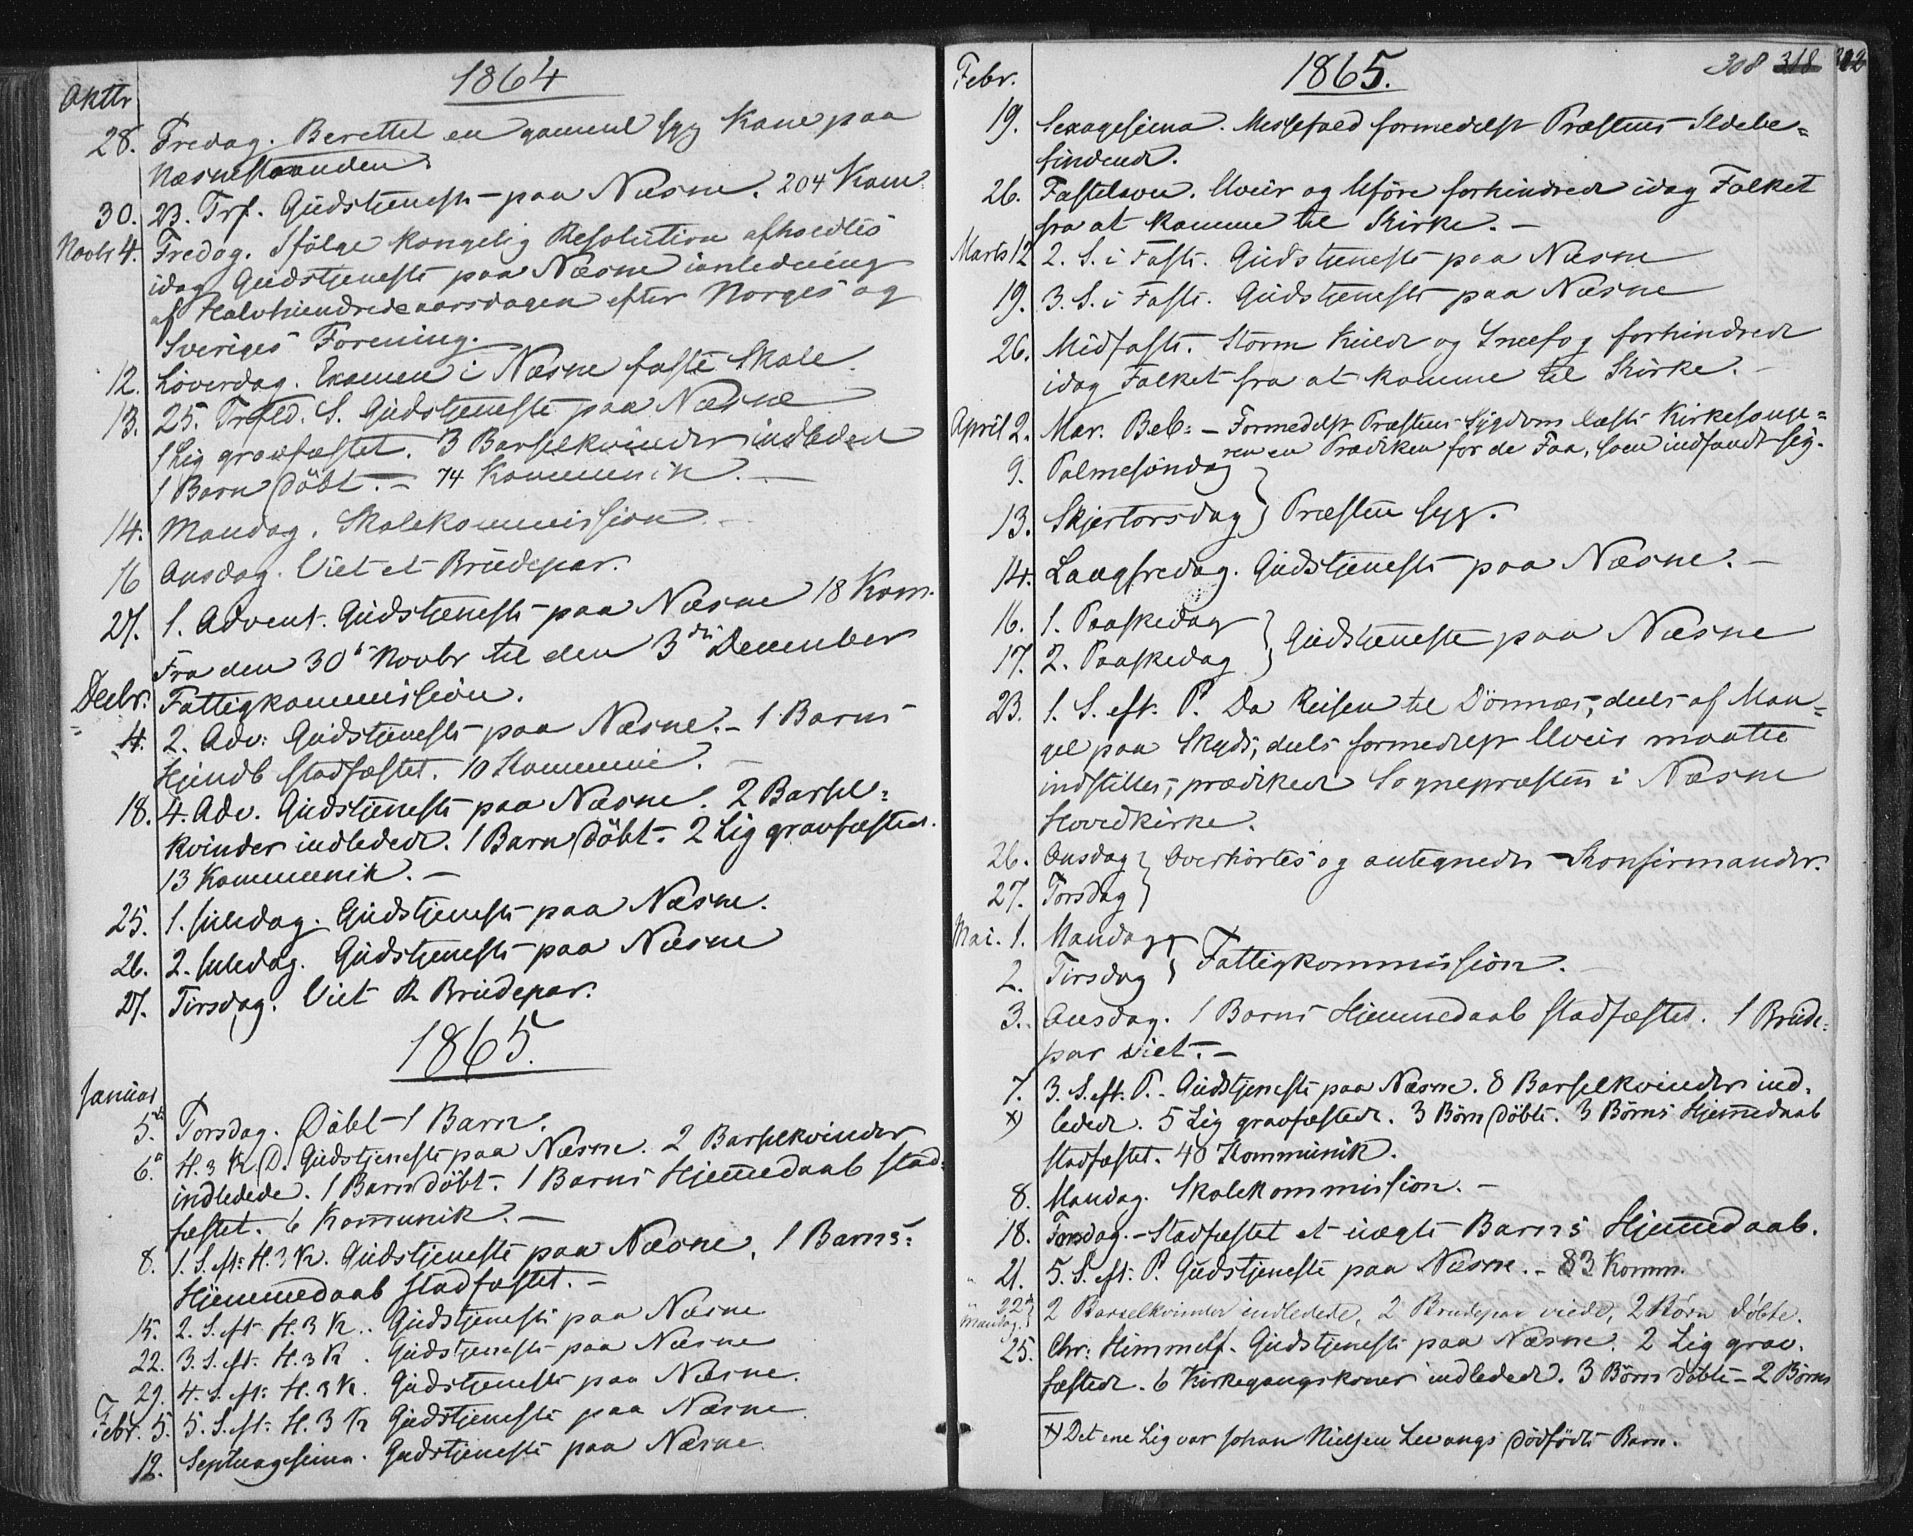 1864
Oktbr
28. Fredag. Berettet en gammel syg Kone paa
Næsnestranden.
30. 23. Trf. Gudstjeneste paa Næsne. 204 Kom.
Novbr 4. Fredag. Ifölge kongelig Resolution afholdtes
idag Gudstjeneste paa Næsne ianledning
af Halvhundredeaarsdagen efter Norges og
Sveriges Forening.
12. Löverdag. Examen i Næsne faste Skole.
13. 25. Trfld. S. Gudstjeneste paa Næsne
1 Lig gravfæstet. 3 Barselkvinder indledet
1 Barn döbt. – 74 Kommunik. –
14. Mandag. Skolekommission. –
16 Onsdag. Viet et Brudepar.
27. 1. Advent. Gudstjeneste paa Næsne 18 Kom.
Fra den 30te Novbr til den 3die December
Decbr. Fattigkommission.
4. 2. Adv: Gudstjeneste paa Næsne. – 1 Barns
Hjmdb stadfæstet. 10 Kommuni. –
18. 4. Adv. Gudstjeneste paa Næsne. 2 Barsel=
kvinder indledede. 1 Barn döbt. 2 Lig gravfæstet.
13 Kommunik. –
25. 1. Juledag. Gudstjeneste paa Næsne.
26. 2. Juledag. Gudstjeneste paa Næsne
27. Tirsdag. Viet 2 Brudepar.
1865.
Januar
5. Torsdag. Döbt 1 Barn.
6. H. 3 K. D. Gudstjeneste paa Næsne. 2 Barselkvinder
indledede. 1 Barn döbt. 1 Barns Hjemmedaab stad=
fæstet. 6 Kommunik. –
8. 1. S. eft: H. 3 K. Gudstjeneste paa Næsne. 1 Barns
Hjemmedaab stadfæstet. –
15. 2. S. eft. H. 3 K. Gudstjeneste paa Næsne
22. 3. S. eft. H. 3 K. Gudstjeneste paa Næsne
29. 4. S. eft: H. 3 K. Gudstjeneste paa Næsne.
Febr. 5. 5. S. eft: H. 3 K Gudstjeneste paa Næsne
12. Septuagesima. Gudstjeneste paa Næsne.
Febr. 1865. 308 318
19. Sexagesima. Messefald formedelst Præstens Ildebe=
findende.
26. Fastelavn. Uveir og Uföre forhindrede idag Folket
fra at komme til Kirke. –
Marts 12 2. S. i Faste. Gudstjeneste paa Næsne
19. 3. S. i Faste. Gudstjeneste paa Næsne
26. Midfaste. Storm Kulde og Sneefog forhindrede
idag Folket fra at komme til Kirke. –
April 2. Mar. Beb: – Formedelst Præstens Sygdom læste Kirkesange=
ren en Prædiken for de Faa, som indfandt sig.
9. Palmesöndag
13. Skjertorsdag } Præsten syg.
14. Langfredag. Gudstjeneste paa Næsne. –
16. 1. Paaskedag
17. 2. Paaskedag } Gudstjeneste paa Næsne
23. 1. S. eft. P. Da Reisen til Dönnæs, deels af Man=
gel paa Skyds, deels formedelst Uveir maatte
indstilles, prædikede Sognepræsten i Næsne
Hovedkirke.
26. Onsdag } Overhörtes og antegnedes Konfirmander.
27. Torsdag }
Mai. 1. Mandag
2. Tirsdag } Fattigkommission. –
3. Onsdag. 1 Barns Hjemmedaab stadfæstet. 1 Brude=
par viet. –
7. 3. S. eft. P. Gudstjeneste paa Næsne. 8 Barselkvinder ind=
x) ledede. 5 Lig gravfæstede. 3 Börn döbte. 3 Börns Hjemmedaab
stadfæstet. 40 Kommunik.
8. Mandag. Skolekommission. –
18. Torsdag. – Stadfæstet et uægte Barns Hjemmedaab.
21. 5. S. eft: P. Gudstjeneste paa Næsne. – 83 Komm.
22de Mandag. } 2 Barselkvinder indledede, 2 Brudepar viede, 2 Börn döbte.
25. Chr: Himmelf. Gudstjeneste paa Næsne. 2 Lig grav.
fæstede. 6 Kirkegangskoner indledede. 3 Börn döbte – 2 Börns
x) Det ene Lig var Johan Nielsen Levangs dödfödte Barn.